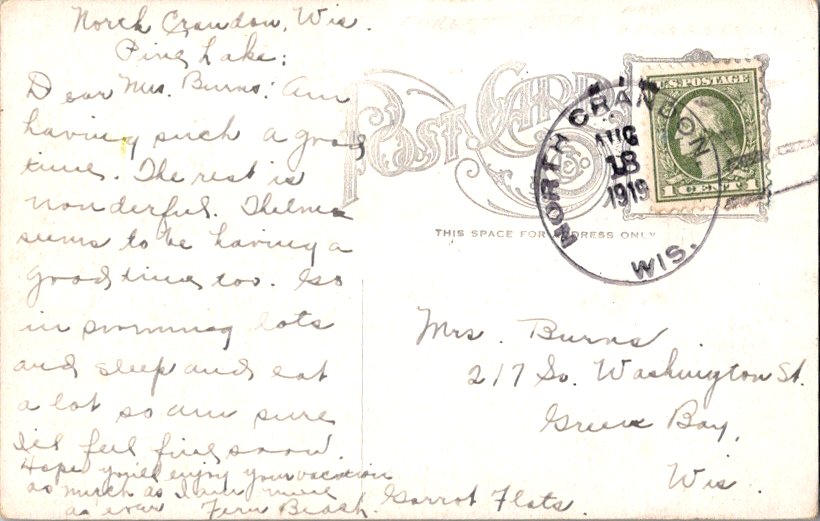 North Crandon, Wis.
Pine Lake:
Dear Mrs. Burns: Am
having such a good
time. The rest is
wonderful. Thelma
seems to be having a
good time too. Go
in swimming lots
and sleep and eat
a lot so am sure
I'll feel fine soon.
Hope you'll enjoy your vacation
as much as I am mine
as ever Fern Beach.
POST CARD
THIS SPACE FOR ADDRESS ONLY
U.S. POSTAGE
1 CENT 1
NORTH CRANDON
AUG
18
1919
WIS.
Mrs. Burns
217 So. Washington St.
Green Bay,
Wis.
Garrot Flats.